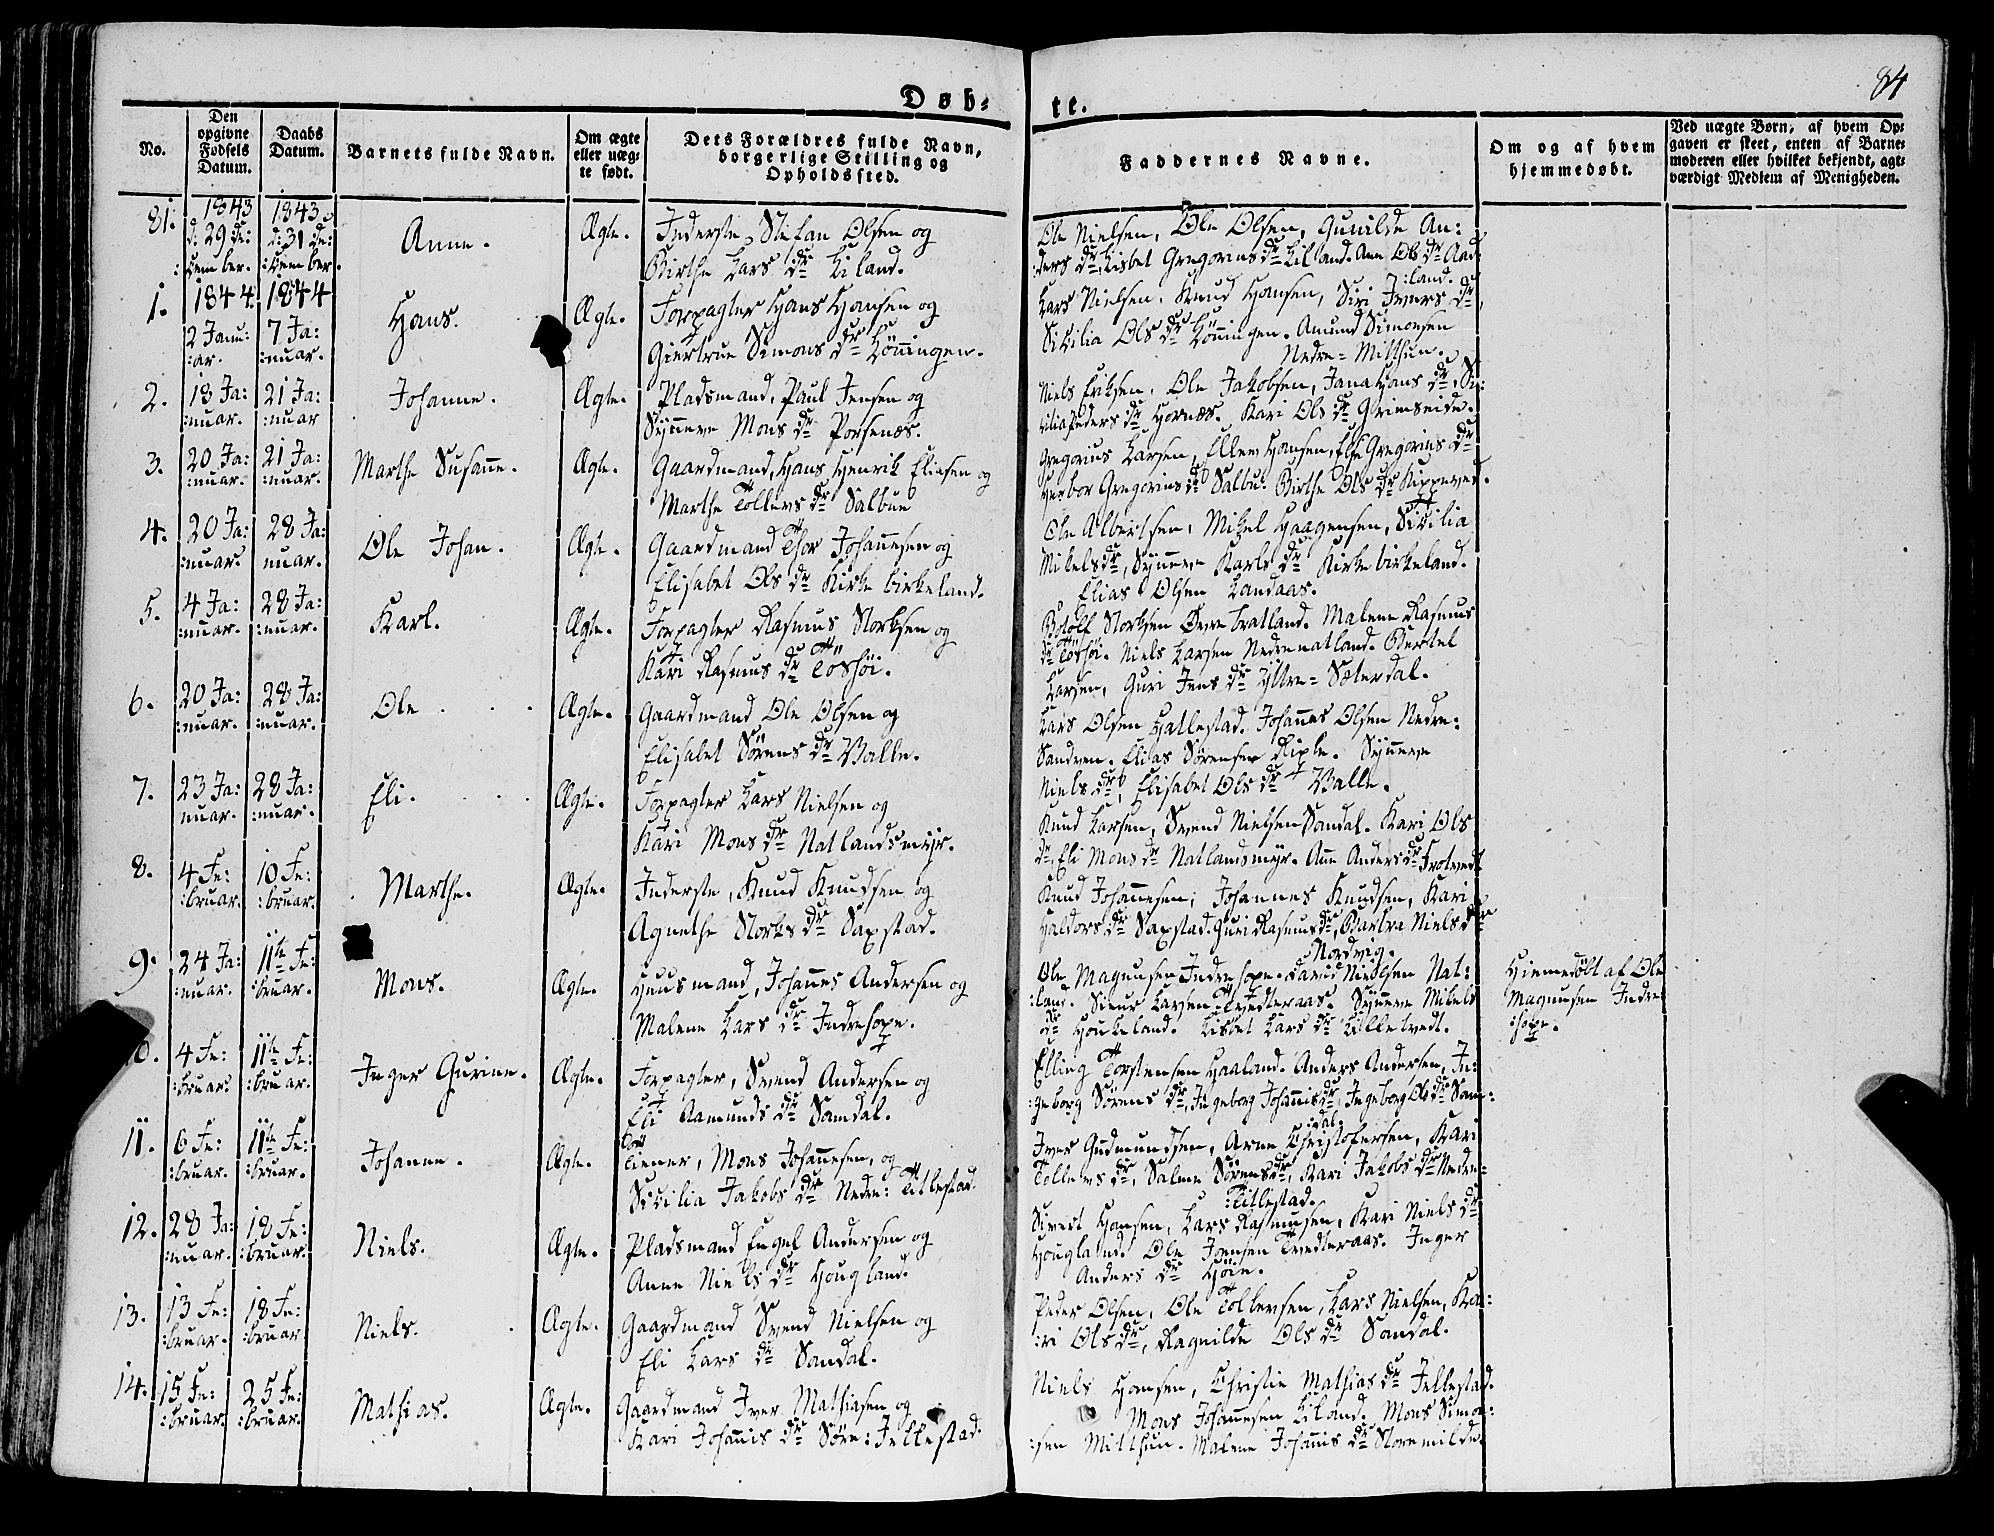 84
Døb-
te.
No.
Den opgivne Fødsels Datum.
Daabs Datum.
Barnets fulde Navn.
Om ægte eller uægte født.
Dets Forældres fulde Navn, borgerlige Stilling og Opholdssted.
Faddernes Navne.
Om og af hvem hjemmedøbt.
Ved uægte Børn, af hvem Opgaven er skeet, enten af Barnemoderen eller hvilket bekjendt, agtværdigt Medlem af Menigheden.
81. 1843 d: 29 De: :cember. 1843 d: 31 De: :cember. Anne. Ægte. Inderste Stefan Olsen og
Birthe Lars dr Liland.
Ole Nielsen, Ole Olsen, Gunilde An:
:ders dr, Lisbet Gregorius dr Liland. Ane Ols dr Aad:
:land.
1. 1844 2 Janu: :ar. 1844 7 Ja: :nuar. Hans. Ægte. Forpagter Hans Hansen og
Giertrue Simons dr Hönningen.
Lars Nielsen. Knud Hansen, Siri Ivers dr,
Sicilia Ols dr Hönningen. Amund Simonsen
Nedre-Milthun.
2. 18 Ja: :nuar. 21 Ja: :nuar Johanne. Ægte. Pladsmand, Paul Jensen og
Synneve Mons dr Porsenæs.
Niels Eriksen. Ole Jakobsen, Jana Hans dr, Si:
cilia Peders dr Hornæs. Kari Ols dr Grimseide.
3. 20 Ja: :nuar. 21 Ja: :nuar. Marthe Susanne. Ægte. Gaardmand, Hans Henrik Eliesen og
Marthe Tollevs dr Salbue
Gregorius Larsen, Ellen Hansen, Else Gregorius dr
Herbor Gregorius dr Salbu. Birthe Ols dr Kippeved.
4. 20 Ja: :nuar. 28 Ja: nuar. Ole Johan. Ægte. Gaardmand Thor Johannesen og
Elisabet Ols dr Kirke birkeland.
Ole Albertsen, Mikel Haagensen, Sicilia
Mikels dr, Synneve Karls dr Kirkebirkeland.
Elias Olsen Landaas.
5. 4 Ja: :nuar. 28 Ja: :nuar. Karl. Ægte. Forpagter Rasmus Storksen og
Kari Rasmus dr Töshöi.
Botolf Storksen Övre bratland. Malene Rasmus
dr Töshöi. Niels Larsen Nedrenatland. Bertel
Larsen, Guri Jens dr Ytre-Sæterdal.
6. 20 Ja: :nuar. 28 Ja: :nuar. Ole Ægte. Gaardmand Ole Olsen og
Elisabet Sörens dr Valle.
Lars Olsen Hattestad. Johannes Olsen Nedre:
Sandven. Elias Sörensen Riple. Synneve
Niels dr, Elisabet Ols dr Valle.
7. 23 Ja: nuar. 28 Ja: :nuar. Eli. Ægte. Forpagter Lars Nielsen og
Kari Mons dr Natlandsmyr.
Knud Larsen, Svend Nielsen Sandal. Kari Ols
dr, Eli Mons dr Natlandsmyr. Ane Anders dr Frotvedt
8. 4 Fe: :bruar. 10 Fe: :bruar. Marthe. Ægte. Inderste, Knud Knudsen og
Agnethe Storks dr Saxstad.
Knud Johannesen, Johannes Knudsen, Kari
Haldors dr Saxstad. Guri Rasmus dr, Barbra Niels dr
Nordvig.
9. 24 Ja: :nuar. 11te Fe: :bruar. Mons. Ægte. Huusmand, Johannes Andersen og
Malene Lars dr Indrehope.
Ole Magnusen Indrehope. David Nielsen Nat:
:land. Sieur Larsen Tvedteraas. Synneve Mikels
dr Houkeland. Lisbet Lars dr Lilletvedt.
Hiemedöbt af Ole
Magnusen Indre:
:hope.
10. 4 Fe: :bruar. 11te Fe: :bruar. Inger Gurine. Ægte. Forpagter, Svend Andersen og
Eli Aamunds dr Sandal.
Elling Torstensen Haaland. Anders Andersen, In:
:geborg Sörens dr, Ingeborg Johannis dr, Ingeborg Ols dr San:
:dal.
11. 6 Fe: :bruar. 11te Fe: :bruar. Johanne. Ægte. Tiener, Mons Johannesen, og
Sicilia Jakobs dr Nedre: Titlestad.
Iver Gudmundsen, Arne Christofersen, Kari
Tollevs dr, Salme Sörens dr, Kari Jakobs dr Nedre-
Titlestad.
12. 28 Ja: :nuar. 18 Fe: :bruar. Niels. Ægte. Pladsmand Engel Andersen og
Anne Niels dr Hougland.
Sivert Hansen, Lars Rasmusen, Kari Niels dr
Hougland. Ole Joensen Tvedteraas. Inger
Anders dr Höie.
13. 13 Fe: :bruar. 18 Fe: :bruar Niels. Ægte. Gaardmand Svend Nielsen og
Eli Lars dr Sandal.
Peder Olsen, Ole Tollevsen, Lars Nielsen, Ka:
:ri Ols dr, Ragnilde Ols dr Sandal.
14. 15 Fe: :bruar. 25 Fe: :bruar. Mathias. Ægte. Gaardmand Iver Mathiasen og
Kari Johannis dr Söre: Jellestad.
Niels Hansen, Christie Mathias dr Jellestad.
Mons Johannesen Liland. Mons Simon:
:sen Milthun. Malene Johannis dr Storemilde.